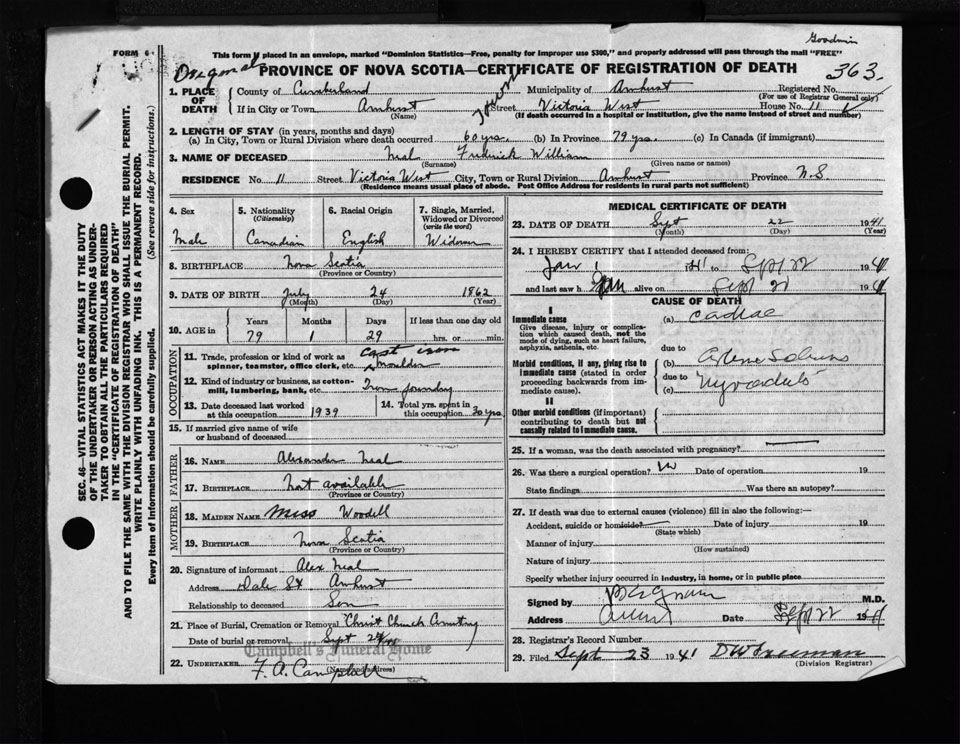 Goodwin
FORM 6
This form if placed in an envelope, marked "Dominion Statistics—Free, penalty for improper use $300," and properly addressed will pass through the mail "FREE"
Original
PROVINCE OF NOVA SCOTIA—CERTIFICATE OF REGISTRATION OF DEATH
363.
1. PLACE OF DEATH
County of Cumberland Municipality of Amherst Registered No.
(For use of Registrar General only)
If in City or Town Amherst Street Victoria West House No. 11
(Name) (If death occurred in a hospital or institution, give the name instead of street and number)
Town
2. LENGTH OF STAY (in years, months and days)
(a) In City, Town or Rural Division where death occurred 60 yrs. (b) In Province 79 yrs. (c) In Canada (if immigrant)
3. NAME OF DECEASED Neal Frederick William
(Surname) (Given name or names)
RESIDENCE No 11 Street Victoria West City, Town or Rural Division Amherst Province N.S.
(Residence means usual place of abode. Post Office Address for residents in rural parts not sufficient)
4. Sex
Male
5. Nationality
(Citizenship)
Canadian
6. Racial Origin
English
7. Single, Married, Widowed or Divorced
(write the word)
Widower
8. BIRTHPLACE Nova Scotia
(Province or Country)
9. DATE OF BIRTH July 24 1862
(Month) (Day) (Year)
10. AGE in Years Months Days If less than one day old
79 1 29 hrs. or min.
OCCUPATION
11. Trade, profession or kind of work as spinner, teamster, office clerk, etc. cast iron moulder
12. Kind of industry or business, as cotton-mill, lumbering, bank, etc. Iron foundry
13. Date deceased last worked at this occupation 1939
14. Total yrs. spent in this occupation 30 yrs
15. If married give name of wife or husband of deceased
FATHER
16. NAME Alexander Neal
17. BIRTHPLACE Not available
(Province or Country)
MOTHER
18. MAIDEN NAME Miss Woodell
19. BIRTHPLACE Nova Scotia
(Province or Country)
20. Signature of informant Alex Neal
Address Dale St Amherst
Relationship to deceased Son
21. Place of Burial, Cremation or Removal Christ Church Cemetery
Date of burial or removal Sept 24
Campbell's Funeral Home
22. UNDERTAKER F. A. Campbell
(Name and address)
MEDICAL CERTIFICATE OF DEATH
23. DATE OF DEATH Sept 22 1941
(Month) (Day) (Year)
24. I HEREBY CERTIFY that I attended deceased from:
Jan 1 1941 to Sept 22 1941
and last saw h alive on Sept 21 1941
CAUSE OF DEATH
I
Immediate cause
Give disease, injury or complication which caused death, not the mode of dying, such as heart failure, asphyxia, asthenia, etc.
(a)
due to
Morbid conditions, if any, giving rise to immediate cause (stated in order proceeding backwards from immediate cause).
(b)
due to
(c)
II
Other morbid conditions (if important) contributing to death but not causally related to immediate cause.
25. If a woman, was the death associated with pregnancy?
26. Was there a surgical operation? Date of operation 19
State findings Was there an autopsy?
27. If death was due to external causes (violence) fill in also the following:—
Accident, suicide or homicide? Date of injury 19
(State which)
Manner of injury
(How sustained)
Nature of injury
Specify whether injury occurred in industry, in home, or in public place
Signed by M.D.
Address Date Sept 22 1941
28. Registrar's Record Number
29. Filed Sept 23 1941
(Division Registrar)
SEC. 46—VITAL STATISTICS ACT MAKES IT THE DUTY OF THE UNDERTAKER OR PERSON ACTING AS UNDERTAKER TO OBTAIN ALL THE PARTICULARS REQUIRED IN THE "CERTIFICATE OF REGISTRATION OF DEATH" AND TO FILE THE SAME WITH THE DIVISION REGISTRAR WHO SHALL ISSUE THE BURIAL PERMIT.
WRITE PLAINLY WITH UNFADING INK. THIS IS A PERMANENT RECORD.
Every item of Information should be carefully supplied. (See reverse side for instructions.)